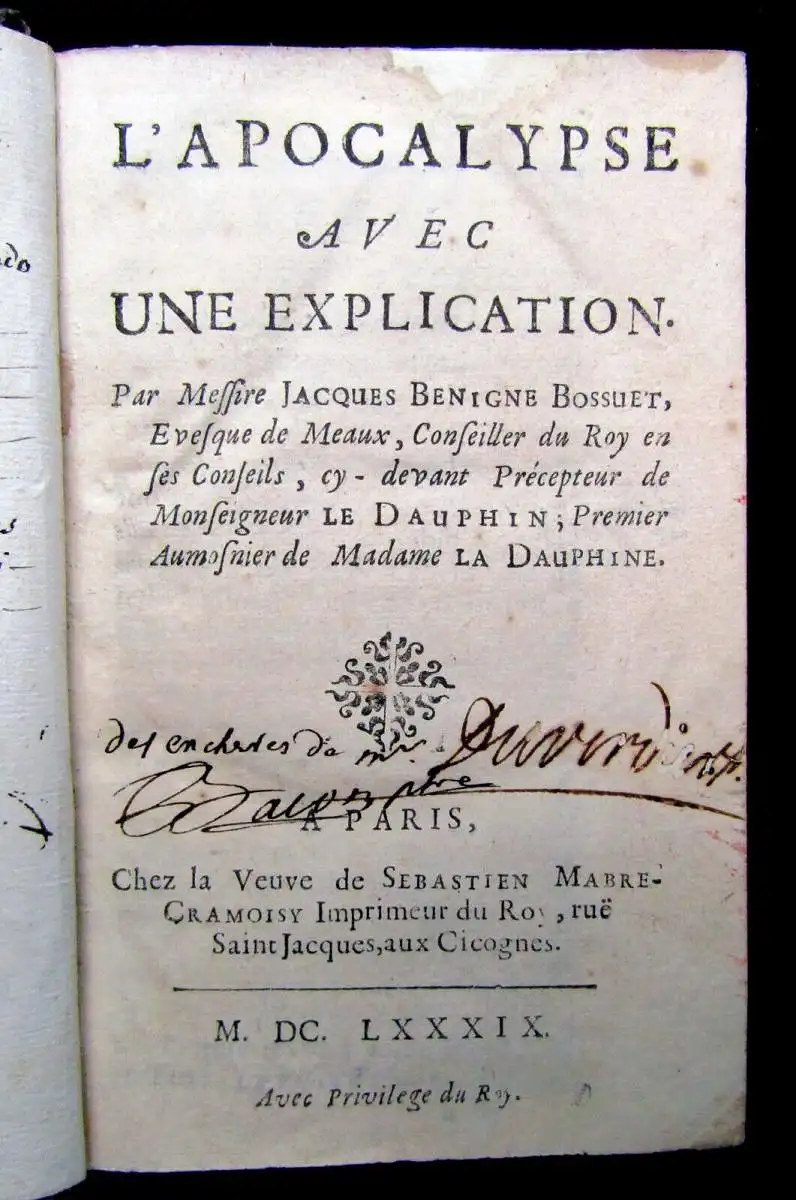 L'APOCALYPSE
AVEC
UNE EXPLICATION.
Par Meſſire JACQUES BENIGNE BOSSUET,
Eveſque de Meaux, Conſeiller du Roy en
ſes Conſeils, cy-devant Précepteur de
Monſeigneur LE DAUPHIN; Premier
Aumoſnier de Madame LA DAUPHINE.
des encheres de mr.
A PARIS,
Chez la Veuve de SEBASTIEN MABRE-
CRAMOISY Imprimeur du Roy, ruë
Saint Jacques, aux Cicognes.
M. DC. LXXXIX.
Avec Privilege du Roy.